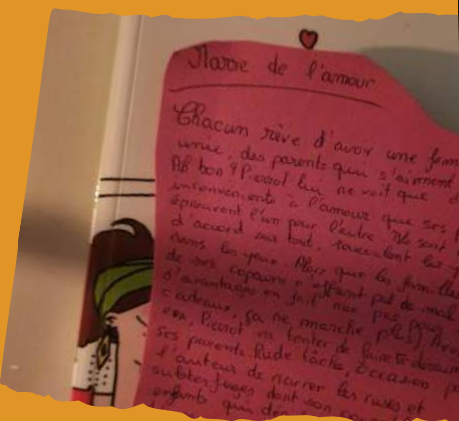 Marre de l'amour
Chacun rêve d'avoir une fam
unie, des parents qui s'aiment
Ah bon ? Pierrot lui ne voit que d
inconvénients à l'amour que ses p
éprouvent l'un pour l'autre. Ils sont
d'accord sur tout, roucoulent les y
dans les yeux. Alors que les familles
de ses copains offrent pas de mal
d'avantages en fait non pas pour
cadeaux, ça ne marche plus). Avec
Pierrot va tenter de faire se désaim
ses parents. Rude tâche, occasion p
l'auteur de narrer les ruses et
subterfuges dont son
enfants qui